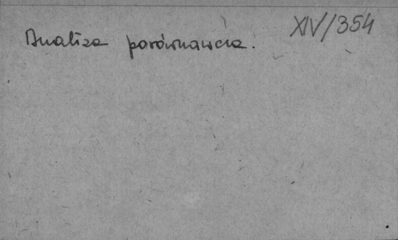 XIV/354
Analiza porównawcza.